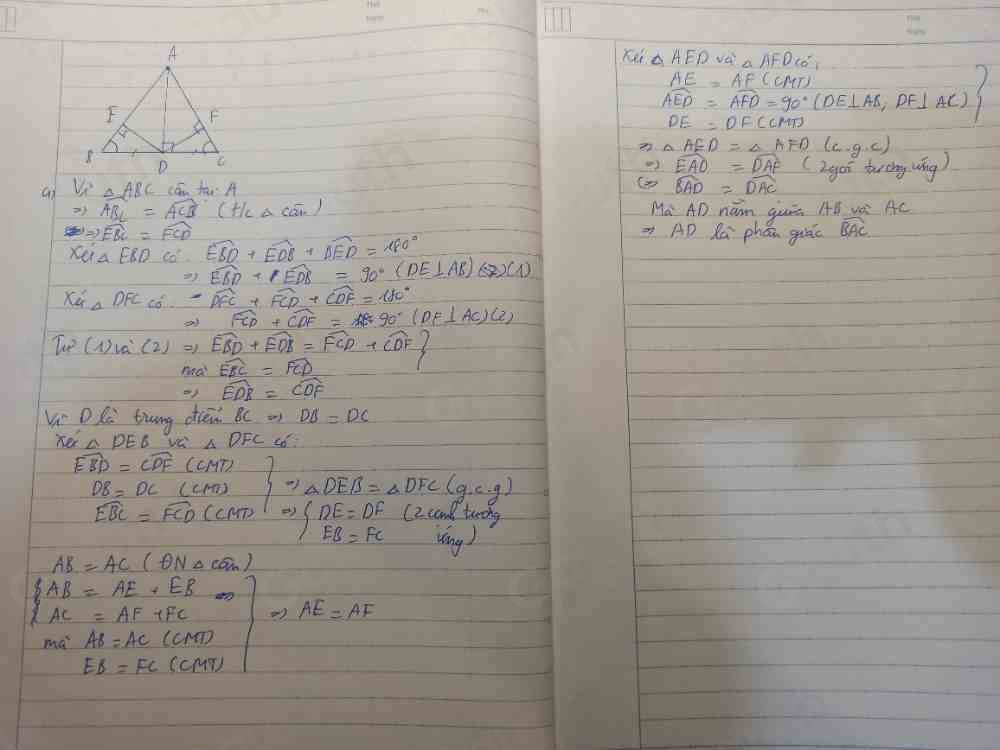 A
E
F
B
D
C
a) Vì △ ABC cân tại A
=> ABC = ACB (t/c △ cân)
=> EBC = FCD
Xét △ EBD có EBD + EDB + BED = 180°
=> EBD + EDB = 90° (DE⊥AB) (1)
Xét △ DFC có DFC + FCD + CDF = 180°
=> FCD + CDF = 90° (DF⊥AC) (2)
Từ (1) và (2) => EBD + EDB = FCD + CDF
mà EBC = FCD
=> EDB = CDF
Vì D là trung điểm BC => DB = DC
Xét △ DEB và △ DFC có:
EBD = CDF (CMT)
DB = DC (CMT)
EBC = FCD (CMT)
=> △ DEB = △ DFC (g.c.g)
=> DE = DF (2 cạnh tương ứng)
EB = FC
AB = AC (ĐN △ cân)
AB = AE + EB
AC = AF + FC
mà AB = AC (CMT)
EB = FC (CMT)
=> AE = AF
Xét △ AED và △ AFD có:
AE = AF (CMT)
AED = AFD = 90° (DE⊥AB, DF⊥AC)
DE = DF (CMT)
=> △ AED = △ AFD (c.g.c)
=> EAD = DAF (2 góc tương ứng)
(=> BAD = DAC
Mà AD nằm giữa AB và AC
=> AD là phân giác BAC